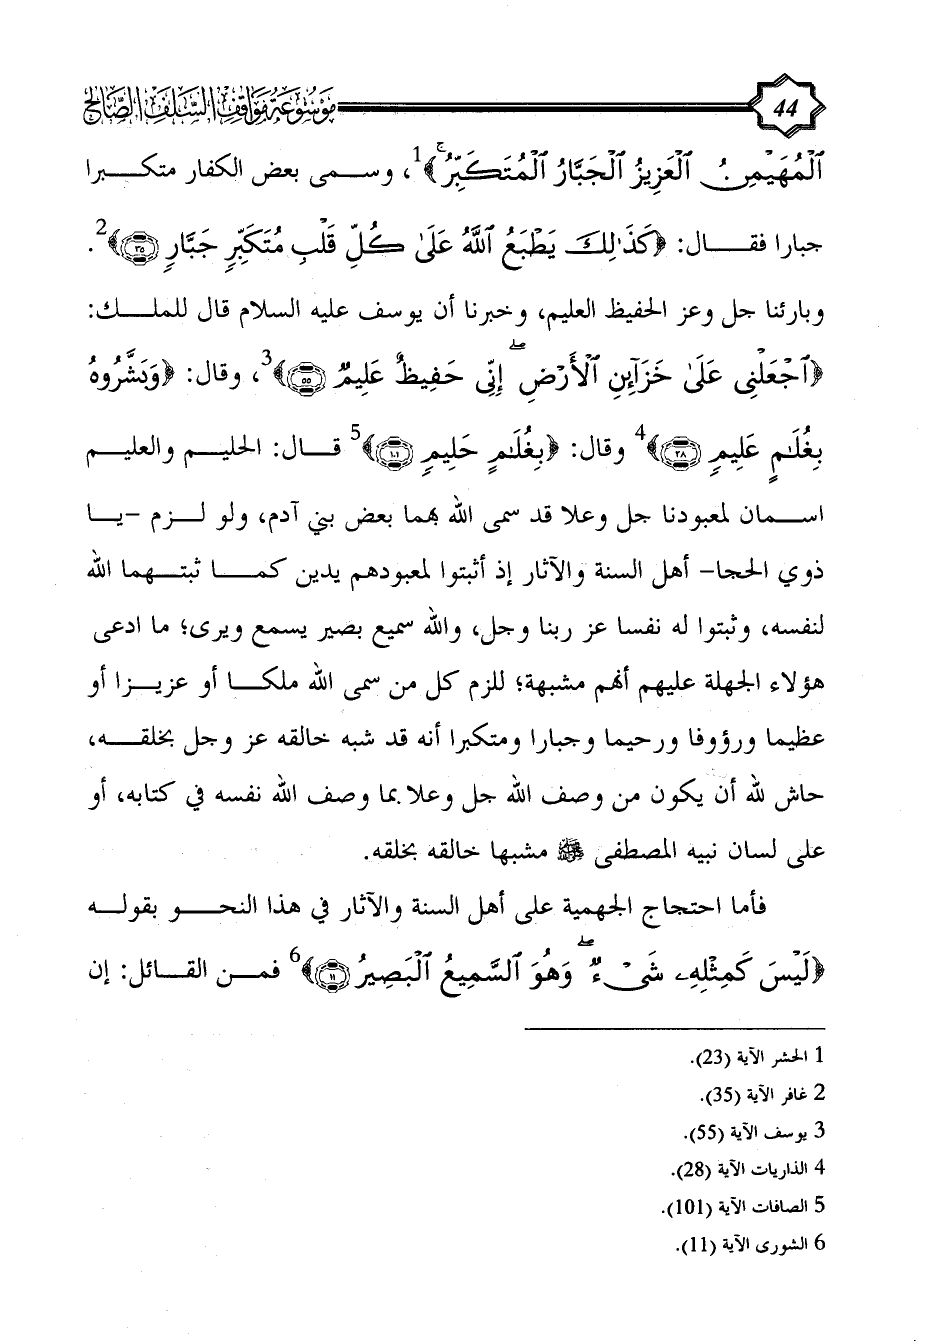 موسوعة مواقف السلف الصالح 44
ٱلْمُهَيْمِنُ ٱلْعَزِيزُ ٱلْجَبَّارُ ٱلْمُتَكَبِّرُ ۚ﴾1، وسمى بعض الكفار متكبرا
جبارا فقال: ﴿كَذَٰلِكَ يَطْبَعُ ٱللَّهُ عَلَىٰ كُلِّ قَلْبِ مُتَكَبِّرٍ جَبَّارٍ ٣٥﴾2.
وبارئنا جل وعز الحفيظ العليم، وخبرنا أن يوسف عليه السلام قال للملك:
﴿ٱجْعَلْنِى عَلَىٰ خَزَآئِنِ ٱلْأَرْضِ ۖ إِنِّى حَفِيظٌ عَلِيمٌ ٥٥﴾3، وقال: ﴿وَبَشَّرُوهُ
بِغُلَٰمٍ عَلِيمٍ ٢٨﴾4 وقال: ﴿بِغُلَٰمٍ حَلِيمٍ ١٠١﴾5 قال: الحليم والعليم
اسمان لمعبودنا جل وعلا قد سمى الله بهما بعض بني آدم، ولو لزم -يا
ذوي الحجا- أهل السنة والآثار إذ أثبتوا لمعبودهم يدين كما ثبتهما الله
لنفسه، وثبتوا له نفسا عز ربنا وجل، والله سميع بصير يسمع ويرى؛ ما ادعى
هؤلاء الجهلة عليهم أنهم مشبهة؛ للزم كل من سمى الله ملكا أو عزيزا أو
عظيما ورؤوفا ورحيما وجبارا ومتكبرا أنه قد شبه خالقه عز وجل بخلقه،
حاش لله أن يكون من وصف الله جل وعلا بما وصف الله نفسه في كتابه، أو
على لسان نبيه المصطفى ﷺ مشبها خالقه بخلقه.
فأما احتجاج الجهمية على أهل السنة والآثار في هذا النحو بقوله
﴿لَيْسَ كَمِثْلِهِۦ شَىْءٌ ۖ وَهُوَ ٱلسَّمِيعُ ٱلْبَصِيرُ ١١﴾6 فمن القائل: إن
1 الحشر الآية (23).
2 غافر الآية (35).
3 يوسف الآية (55).
4 الذاريات الآية (28).
5 الصافات الآية (101).
6 الشورى الآية (11).